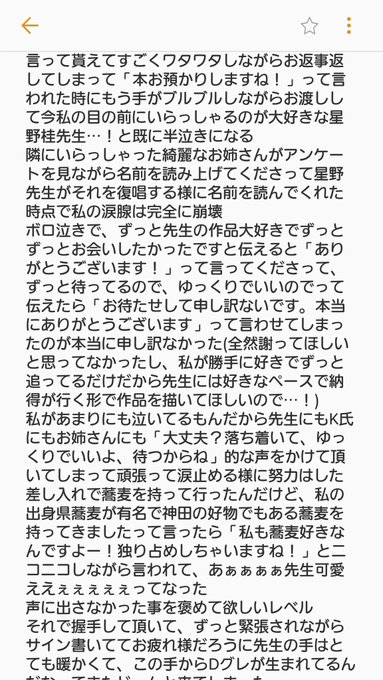 言って貰えてすごくワタワタしながらお返事返
してしまって「本お預かりしますね！」って言
われた時にもう手がブルブルしながらお渡しし
て今私の目の前にいらっしゃるのが大好きな星
野桂先生…！と既に半泣きになる
隣にいらっしゃった綺麗なお姉さんがアンケー
トを見ながら名前を読み上げてくださって星野
先生がそれを復唱する様に名前を読んでくれた
時点で私の涙腺は完全に崩壊
ボロ泣きで、ずっと先生の作品大好きでずっと
ずっとお会いしたかったですと伝えると「あり
がとうございます！」って言ってくださって、
ずっと待ってるので、ゆっくりでいいのでって
伝えたら「お待たせして申し訳ないです。本当
にありがとうございます」って言わせてしまっ
たのが本当に申し訳なかった(全然謝ってほしい
と思ってなかったし、私が勝手に好きでずっと
追ってるだけだから先生には好きなペースで納
得が行く形で作品を描いてほしいので…！)
私があまりにも泣いてるもんだから先生にもK氏
にもお姉さんにも「大丈夫？落ち着いて、ゆっ
くりでいいよ、待つからね」的な声をかけて頂
いてしまって頑張って涙止める様に努力はした
差し入れで蕎麦を持って行ったんだけど、私の
出身県蕎麦が有名で神田の好物でもある蕎麦を
持ってきましたって言ったら「私も蕎麦好きな
んですよー！独り占めしちゃいますね！」とニ
コニコしながら言われて、あぁぁぁぁ先生可愛
ええぇぇぇぇぇってなった
声に出さなかった事を褒めて欲しいレベル
それで握手して頂いて、ずっと緊張されながら
サイン書いててお疲れ様だろうに先生の手はと
ても暖かくて、この手からDグレが生まれてるん